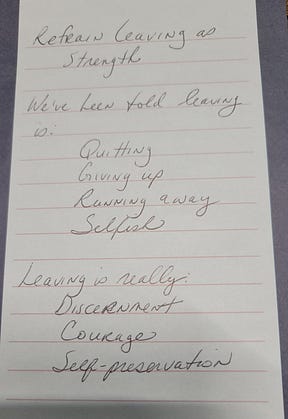 Refrain Leaving as
Strength
We've been told leaving
is:
Quitting
Giving up
Running away
Selfish
Leaving is really:
Discernment
Courage
Self-preservation